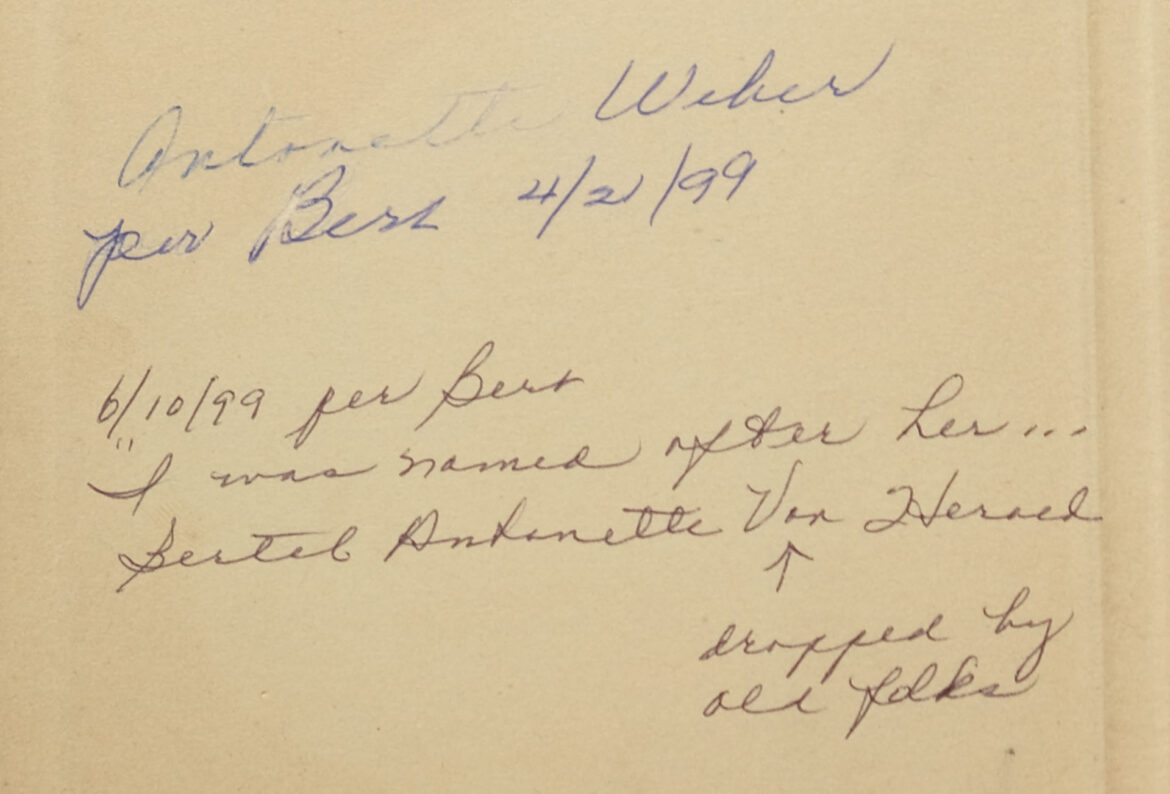 Antonette Weber
per Bert 4/21/99
6/10/99 per Bert
"I was named after her...
Bertel Antonette Von Herold
↑
dropped by
old folks